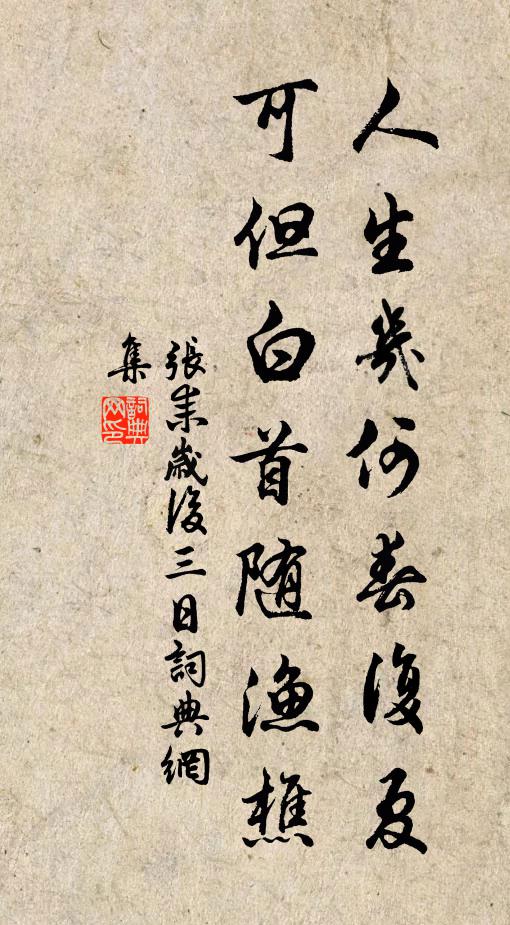 人生幾何春復夏
可但白首随漁樵
張耒歲後三日詞典網
集
詞典
网印